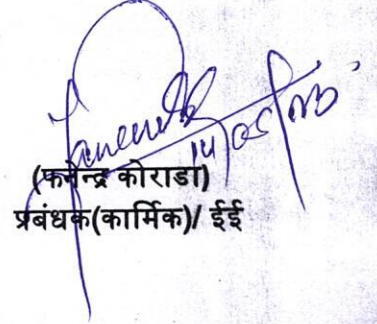 14/05/
(फनेन्द्र कोराडा)
प्रबंधक(कार्मिक)/ ईई